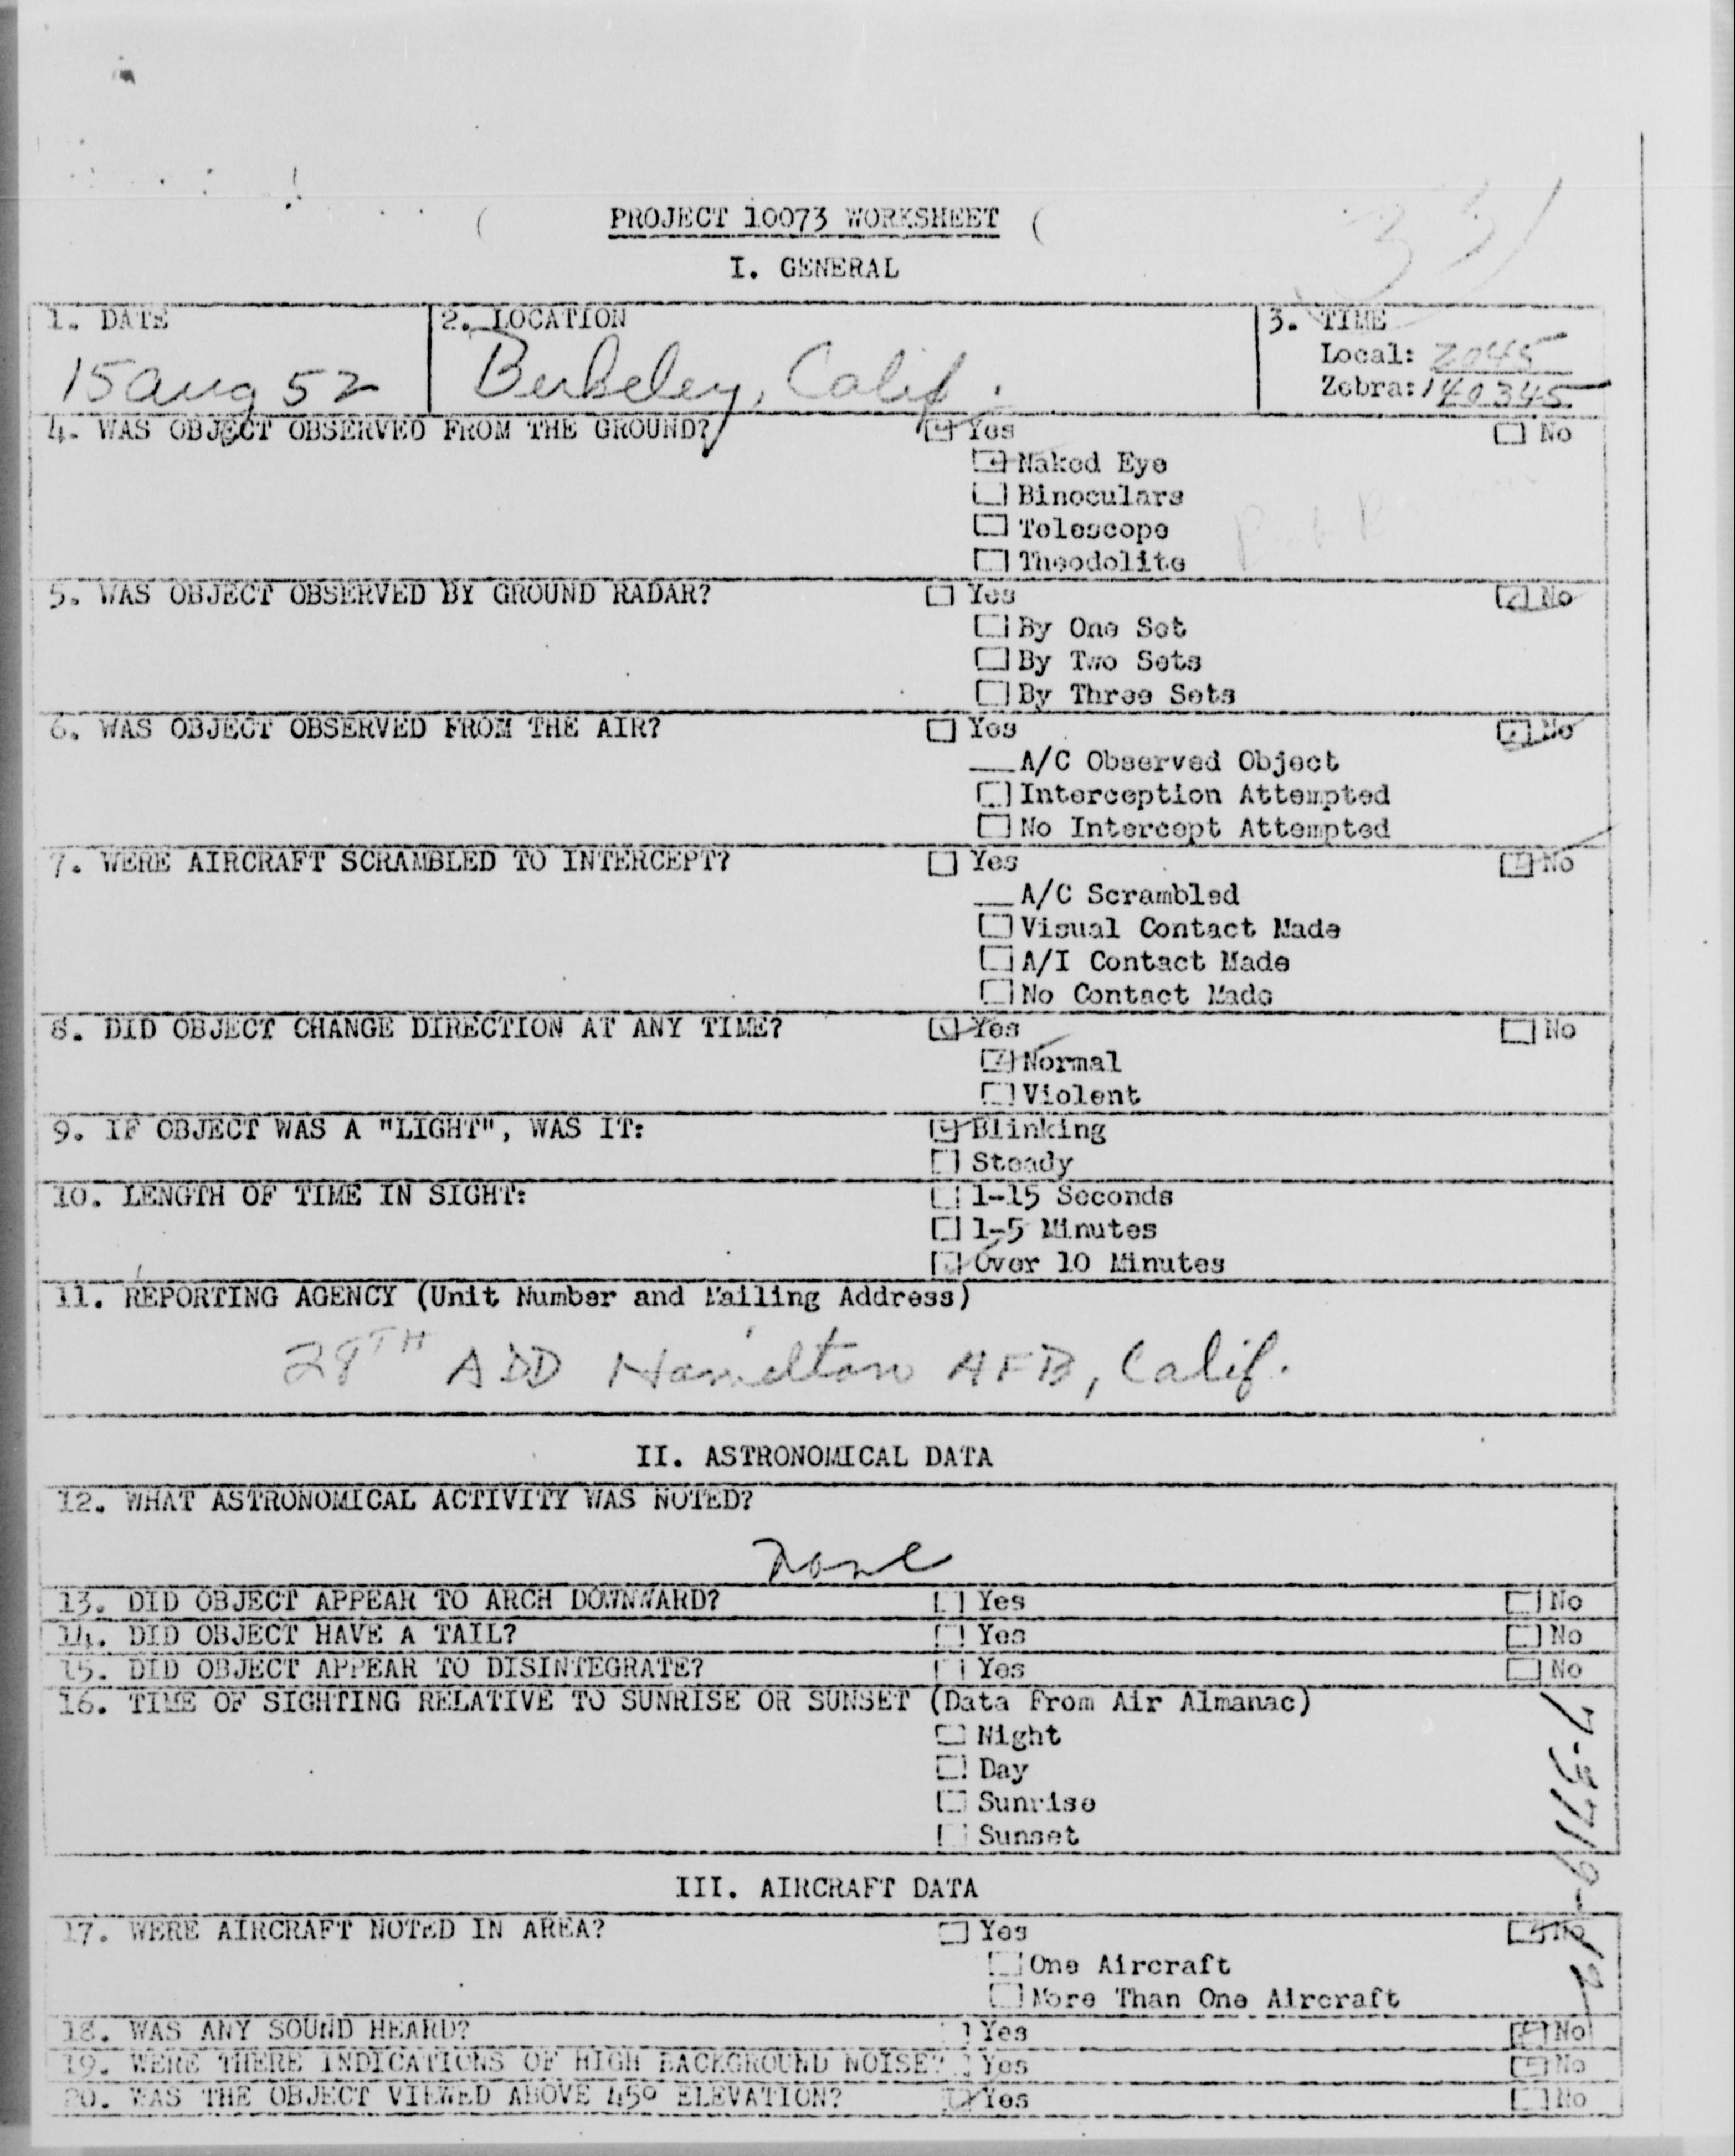 PROJECT 10073 WORKSHEET
I. GENERAL
1. DATE 2. LOCATION 3. TIME
Local: 2045
15 Aug 52 Berkeley, Calif. Zebra: 140345
4. WAS OBJECT OBSERVED FROM THE GROUND? Yes No
Naked Eye
Binoculars
Telescope
Theodolite
5. WAS OBJECT OBSERVED BY GROUND RADAR? Yes No
By One Set
By Two Sets
By Three Sets
6. WAS OBJECT OBSERVED FROM THE AIR? Yes No
A/C Observed Object
Interception Attempted
No Intercept Attempted
7. WERE AIRCRAFT SCRAMBLED TO INTERCEPT? Yes No
A/C Scrambled
Visual Contact Made
A/I Contact Made
No Contact Made
8. DID OBJECT CHANGE DIRECTION AT ANY TIME? Yes No
Normal
Violent
9. IF OBJECT WAS A "LIGHT", WAS IT: Blinking
Steady
10. LENGTH OF TIME IN SIGHT: 1-15 Seconds
1-5 Minutes
Over 10 Minutes
11. REPORTING AGENCY (Unit Number and Mailing Address)
28TH ADD Hamilton AFB, Calif.
II. ASTRONOMICAL DATA
12. WHAT ASTRONOMICAL ACTIVITY WAS NOTED?
None
13. DID OBJECT APPEAR TO ARCH DOWNWARD? Yes No
14. DID OBJECT HAVE A TAIL? Yes No
15. DID OBJECT APPEAR TO DISINTEGRATE? Yes No
16. TIME OF SIGHTING RELATIVE TO SUNRISE OR SUNSET (Data From Air Almanac)
Night
Day
Sunrise
Sunset
III. AIRCRAFT DATA
17. WERE AIRCRAFT NOTED IN AREA? Yes No
One Aircraft
More Than One Aircraft
18. WAS ANY SOUND HEARD? Yes No
19. WERE THERE INDICATIONS OF HIGH BACKGROUND NOISE? Yes No
20. WAS THE OBJECT VIEWED ABOVE 45° ELEVATION? Yes No